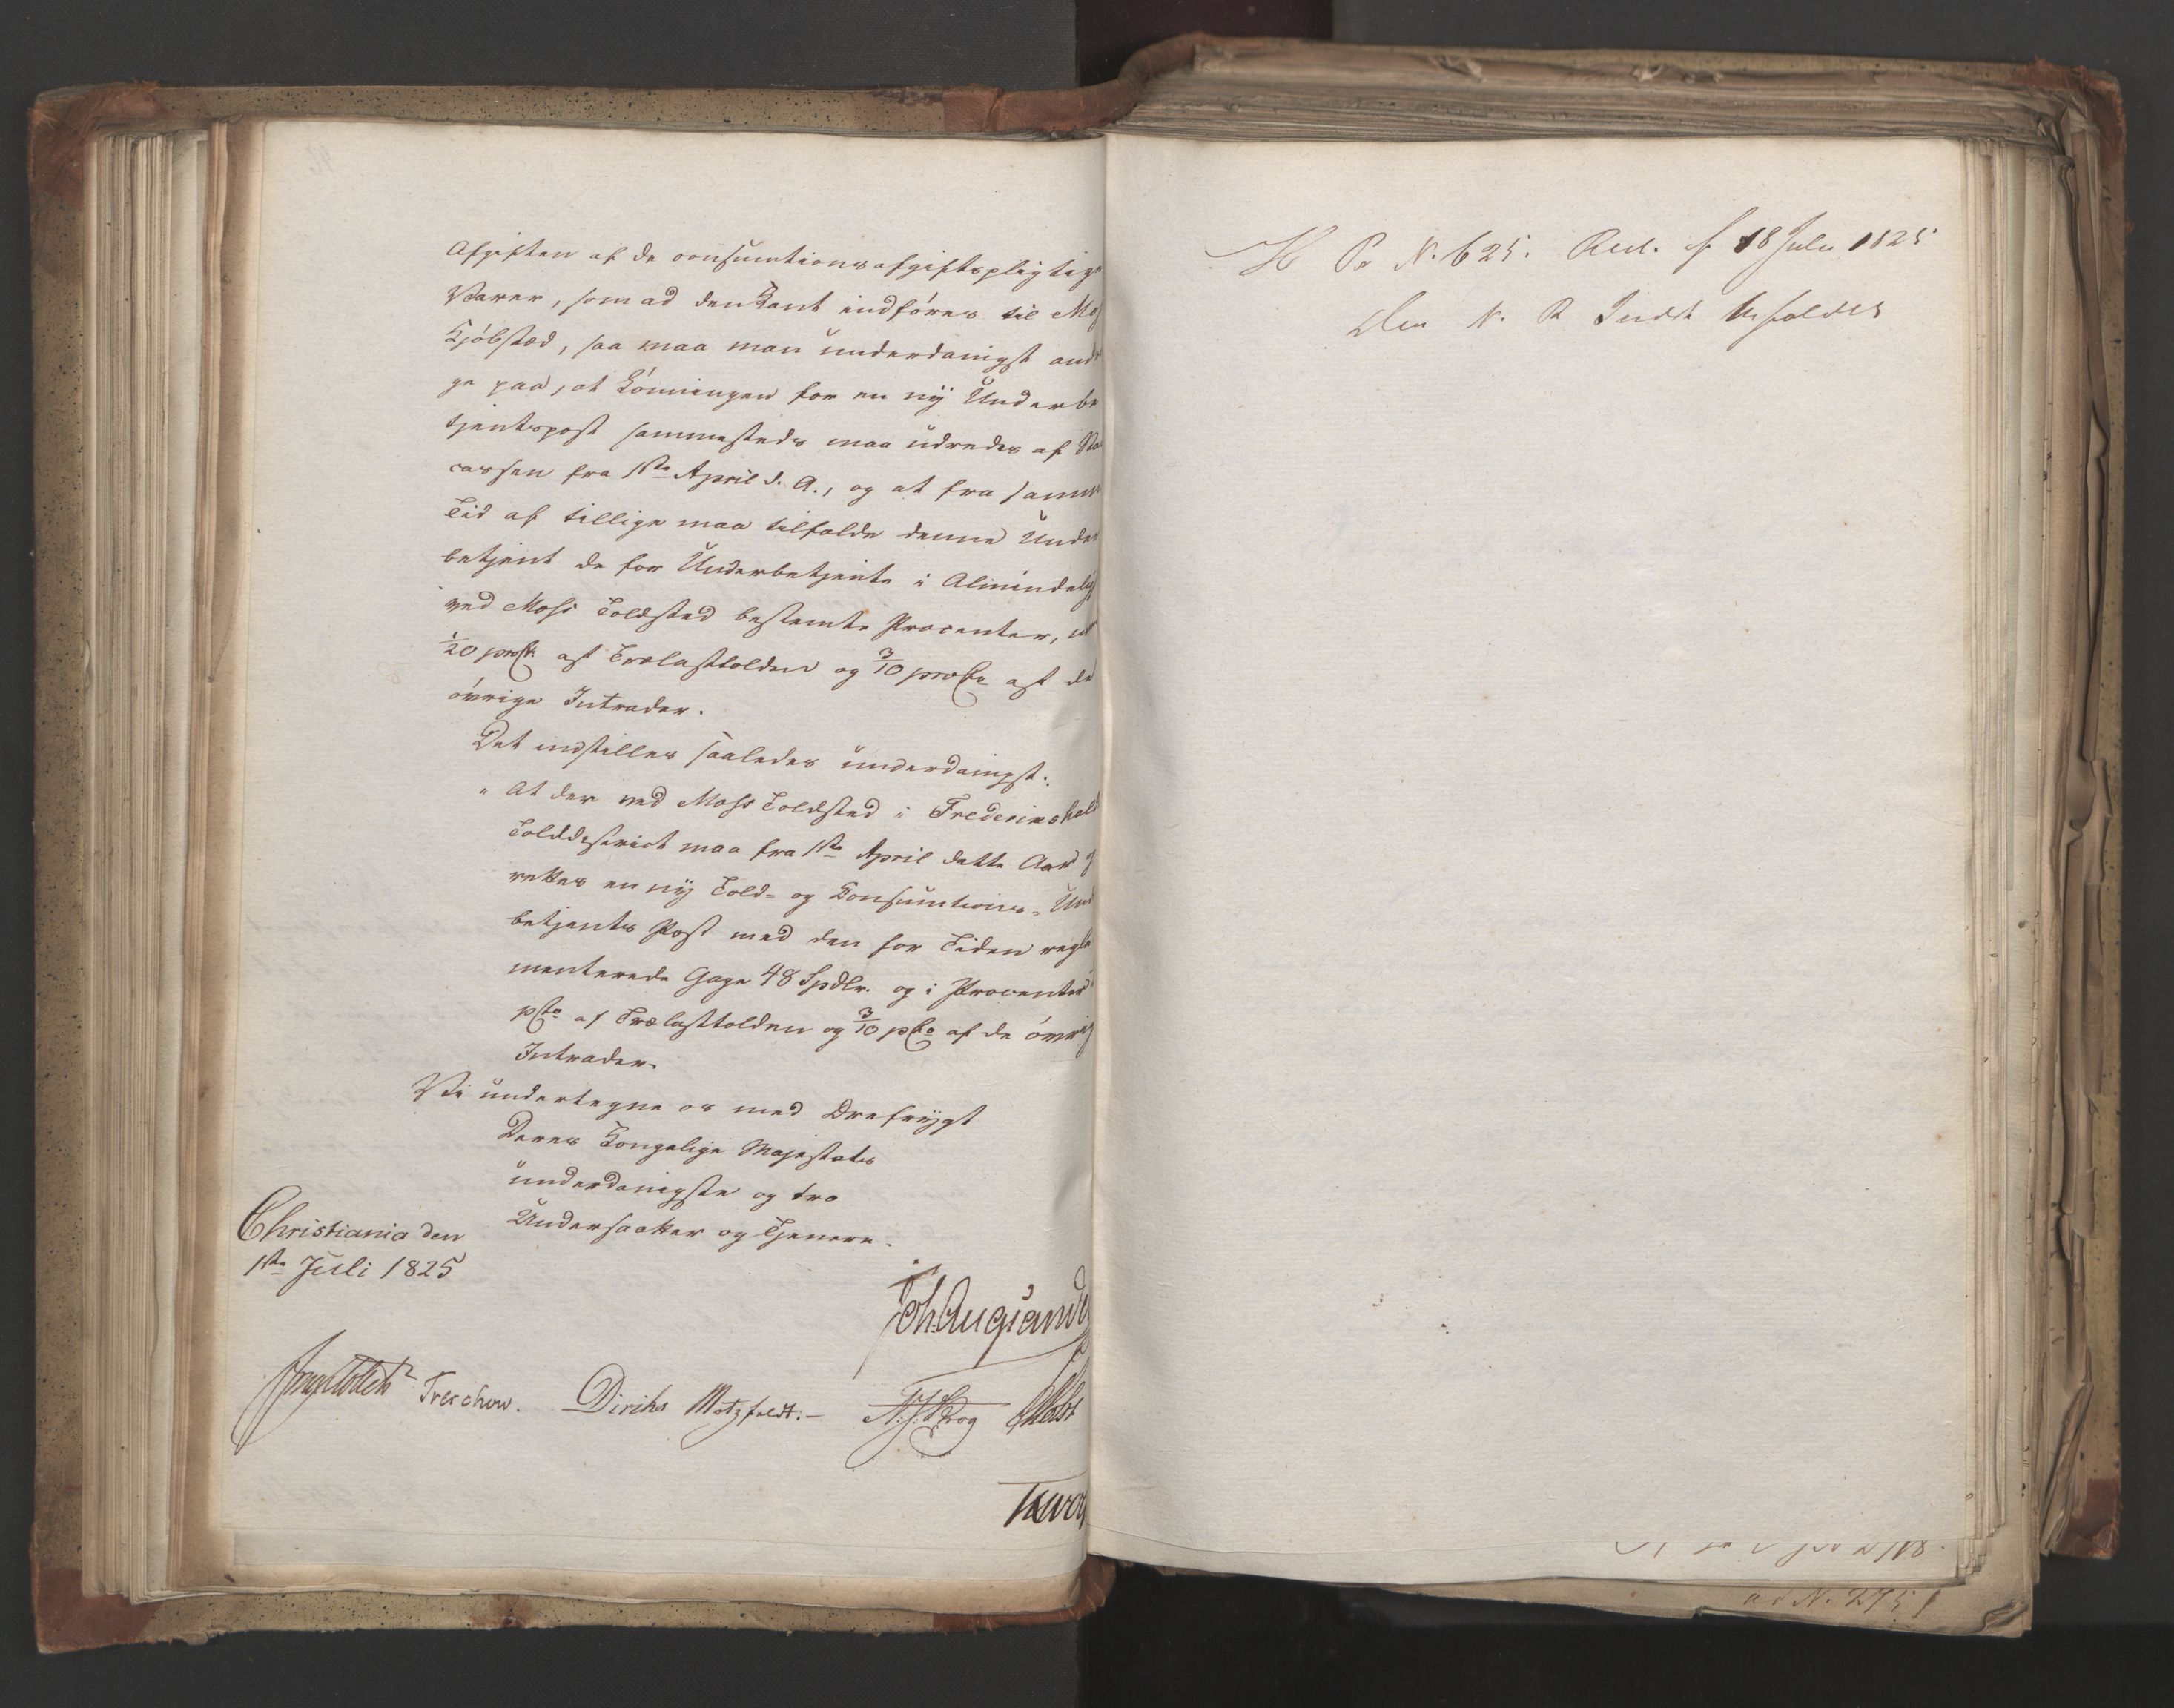 Afgiften af de consumtionsafgiftspligtige
Varer, som ad den Kant indføres til Mos
Kjøbstæd, saa maa man underdanigst andr
ge paa, at Lønningen for en ny Underbe
tjentspost sammesteds maa udredes af Sta
cassen fra 1ste April d. A., og at fra samme
Tid af tillige maa tilfalde denne Under
betjent de for Underbetjente i Almindelig
ved Moss Toldsted bestemte Procenter,
1/20 proCto af Trælasttolden og 3/10 proCto af de
øvrige Intrader.
Det indstilles saaledes underdanigst:
"At der ved Moss Toldsted i Fredrikshald
Tolddistrict maa fra 1ste April dette Aar
rettes en ny Told- og Consumtions-Und
betjents Post med den for Tiden regle
menterede Gage 48 Spdlr. og i Procenter
pCto af Trælasttolden og 3/10 pCto af de øvrig
Intrader.
Vi undertegne os med Ærefrygt
Deres Kongelige Majestæts
underdanigste og tro
Undersaatter og Tjenere.
Christiania den
1ste Juli 1825
Joh. Aug. Sande
Jonas Collett Treschow. Diriks Motzfeldt.- N. J. Krog Holst
H N. 625. 18 Juli 1825
Den N. R. Indst.
ad N. 275